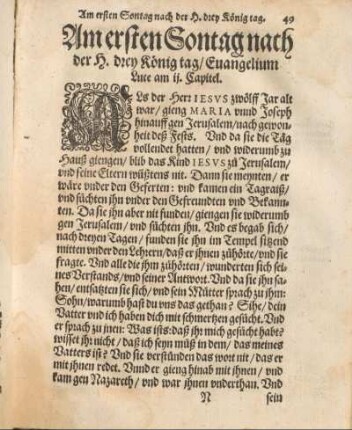 Am ersten Sontag nach der H. drey König tag. 49
Am ersten Sontag nach
der H. drey König tag/ Euangelium
Luce am ij. Capitel.
ALs der Herr IESVS zwölff Jar alt
war/ gieng MARIA vnnd Joseph
hinauff gen Jerusalem/ nach gewon-
heit deß Fests. Vnd da sie die Täg
vollendet hatten/ vnd widerumb zu
Hauß giengen/ blib das Kind IESVS zů Jerusalem/
vnd seine Eltern wüßtens nit. Dann sie meynten/ er
wäre vnder den Geferten: vnd kamen ein Tagraiß/
vnd sůchten jhn vnder den Gefreundten vnd Bekann-
ten. Da sie jhn aber nit funden/ giengen sie widerumb
gen Jerusalem/ vnd sůchten jhn. Vnd es begab sich/
nach dreyen Tagen/ funden sie jhn im Tempel sitzend
mitten vnder den Lehrern/ daß er jhnen zůhörte/ vnd sie
fragte. Vnd alle die jhm zůhörten/ wunderten sich sei-
nes Verstands/ vnd seiner Antwort. Vnd da sie jhn sa-
hen/ entsatzten sie sich/ vnd sein Můtter sprach zů jhm:
Sohn/ warumb hast du vns das gethan? Sihe/ dein
Vatter vnd ich haben dich mit schmertzen gesůcht. Vnd
er sprach zů jnen: Was ists: daß jhr mich gesůcht habt?
wisset jhr nicht/ daß ich seyn můß in dem/ das meines
Vatters ist? Vnd sie verstůnden das wort nit/ das er
mit jhnen redet. Vnnd er gieng hinab mit jhnen/ vnd
kam gen Nazareth/ vnd war jhnen vnderthan. Vnd
N sein